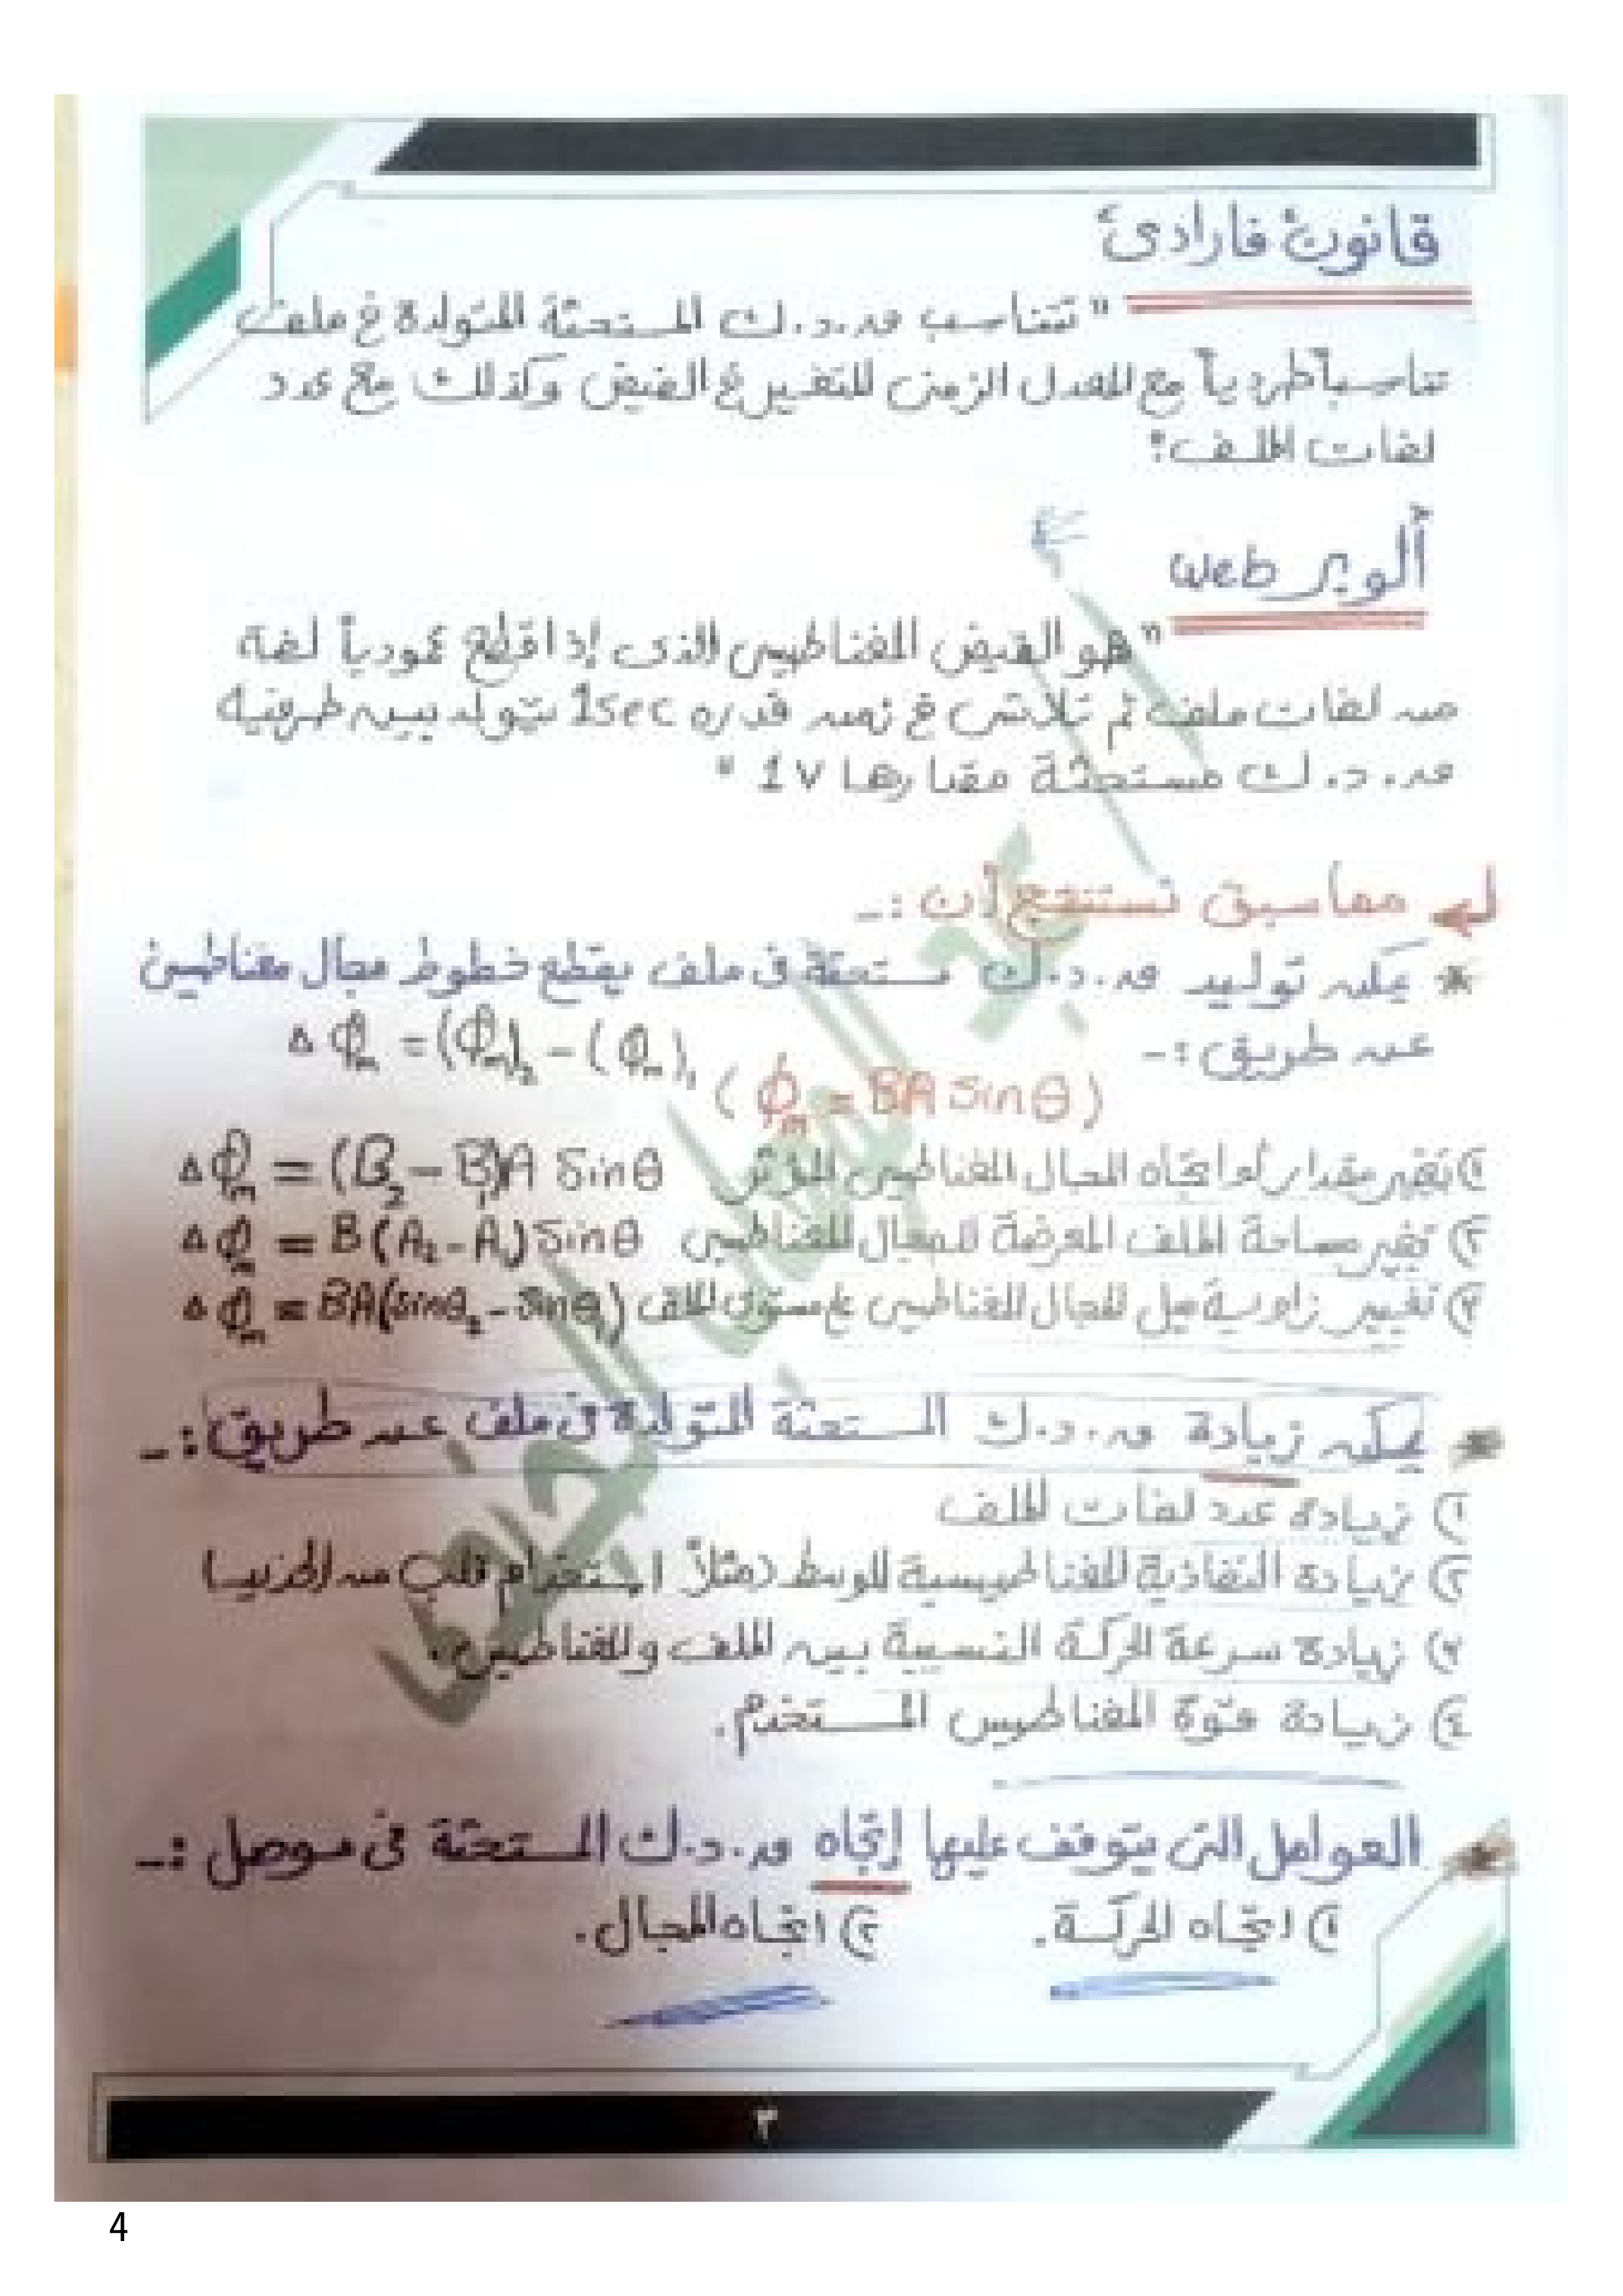 قانون فارادى
" تتناسب ق.د.ك المستحثة المتولدة فى ملف
تناسباً طردياً مع المعدل الزمنى للتغير فى الفيض وكذلك مع عدد
لفات الملف"
ألوبر web
" هو الفيض المغناطيسى الذى إذا قطع عمودياً لفة
من لفات ملف ثم تلاشى فى زمن قدره 1sec تتولد بين طرفيه
ق.د.ك مستحثة مقدارها 1V "
مماسبق نستنتج أن :-
* يمكن توليد ق.د.ك مستحثة فى ملف يقطع خطوط مجال مغناطيسى
عن طريق :- Δφm = (φm)2 - (φm)1
(φm = BA Sinθ)
١) تغير مقدار أو اتجاه المجال المغناطيسى المؤثر Δφm = (B2 - B1)A Sinθ
٢) تغير مساحة الملف المعرضة للمجال المغناطيسى Δφm = B(A2 - A1) Sinθ
٣) تغيير زاوية ميل المجال المغناطيسى على مستوى الملف Δφm = BA(Sinθ2 - Sinθ1)
* يمكن زيادة ق.د.ك المستحثة المتولدة فى ملف عن طريق :-
١) زيادة عدد لفات الملف
٢) زيادة النفاذية المغناطيسية للوسط (مثلاً استخدام قلب من
٣) زيادة سرعة الحركة النسبية بين الملف والمغناطيس.
٤) زيادة قوة المغناطيس المستخدم.
* العوامل التى يتوقف عليها إتجاه ق.د.ك المستحثة فى موصل :-
١) اتجاه الحركة. ٢) اتجاه المجال.
٣
4